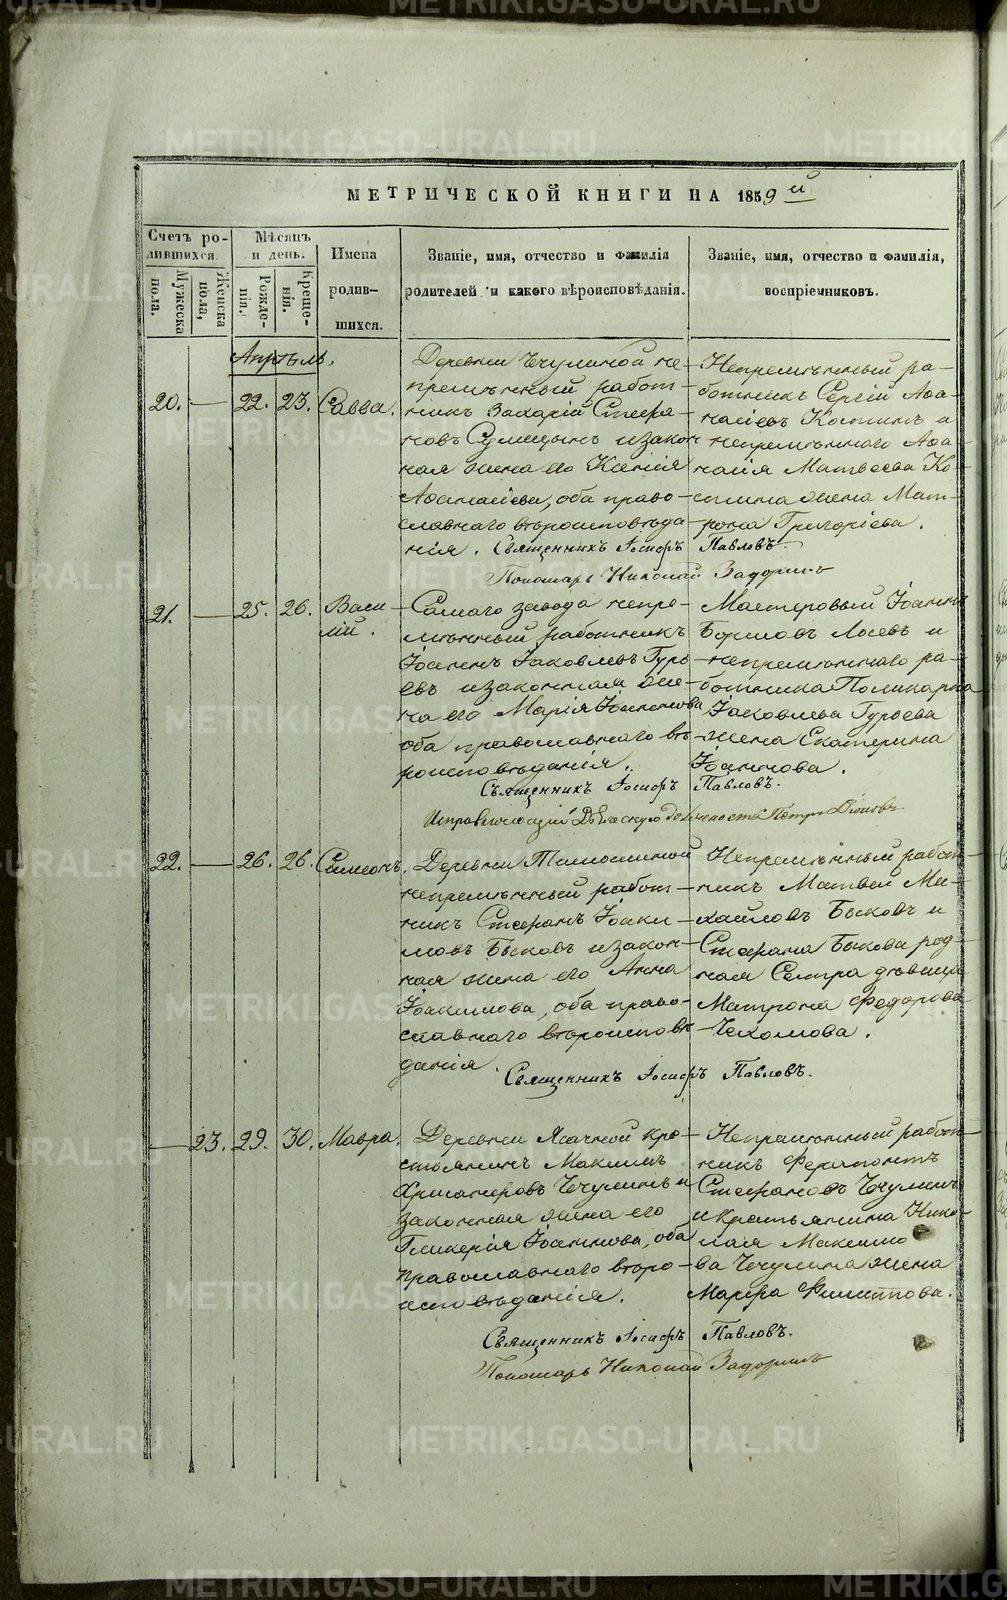 МЕТРИЧЕСКОЙ КНИГИ НА 1859 й
Счетъ ро-
дившихся.
Мужеска
пола.
Женска
пола,
Мѣсяцъ
и день.
Рожде-
нія.
Креще-
нія.
Имена
родив-
шихся.
Званіе, имя, отчество и фамилія
родителей и какого вѣроисповѣданія.
Званіе, имя, отчество и фамилія,
воспріемниковъ.
Апрѣль.
20. — 22. 23. Савва.
Деревни Чечулиной не-
премѣнный работ-
никъ Захарій Стефа-
новъ и закон-
ная жена его Ксенія
Аѳанасіева, оба право-
славнаго вѣроисповѣда-
нія.
Непремѣнный ра-
ботникъ Сергій Аѳа-
насіевъ Костинъ и
непремѣннаго Аѳа-
насія Матвеева Ко-
стина жена Мат-
рона Григоріева.
Священникъ Іосифъ Павловъ.
Пономарь Николай Задоринъ
21. — 25. 26. Васи-
лій.
Самаго завода непре-
мѣнный работникъ
Іоаннъ Іаковлевъ Гурь-
евъ и законная же-
на его Марія Іоаннова
оба православнаго вѣ-
роисповѣданія.
Мастеровый Іоаннъ
Борисовъ Лосевъ и
непремѣннаго ра-
ботника Поликарпа
Іаковлева Гурьева
жена Екатерина
Іоаннова.
Священникъ Іосифъ Павловъ.
Исправляющій должность Петръ
22. — 26. 26. Симеонъ.
Деревни
непремѣнный работ-
никъ Стефанъ Іоаки-
мовъ Быковъ и закон-
ная жена его Анна
Іоакимова, оба право-
славнаго вѣроисповѣ-
данія.
Непремѣнный работ-
никъ Матвей Ми-
хайловъ Быковъ и
Стефана Быкова род-
ная Сестра дѣвица
Матрона Федорова
Священникъ Іосифъ Павловъ.
— 23. 29. 30. Мавра.
Деревни Ясачной кре-
стьянинъ Максимъ
Чечулинъ и
законная жена его
Гликерія Іоаннова, оба
православнаго вѣро-
исповѣданія.
Непремѣнный работ-
никъ Ферапонтъ
Стефановъ Чечулинъ
и крестьянина Нико-
лая Максимо-
ва Чечулина жена
Марфа Филиппова.
Священникъ Іосифъ Павловъ.
Пономарь Николай Задоринъ
METRIKI.GASO-URAL.RU